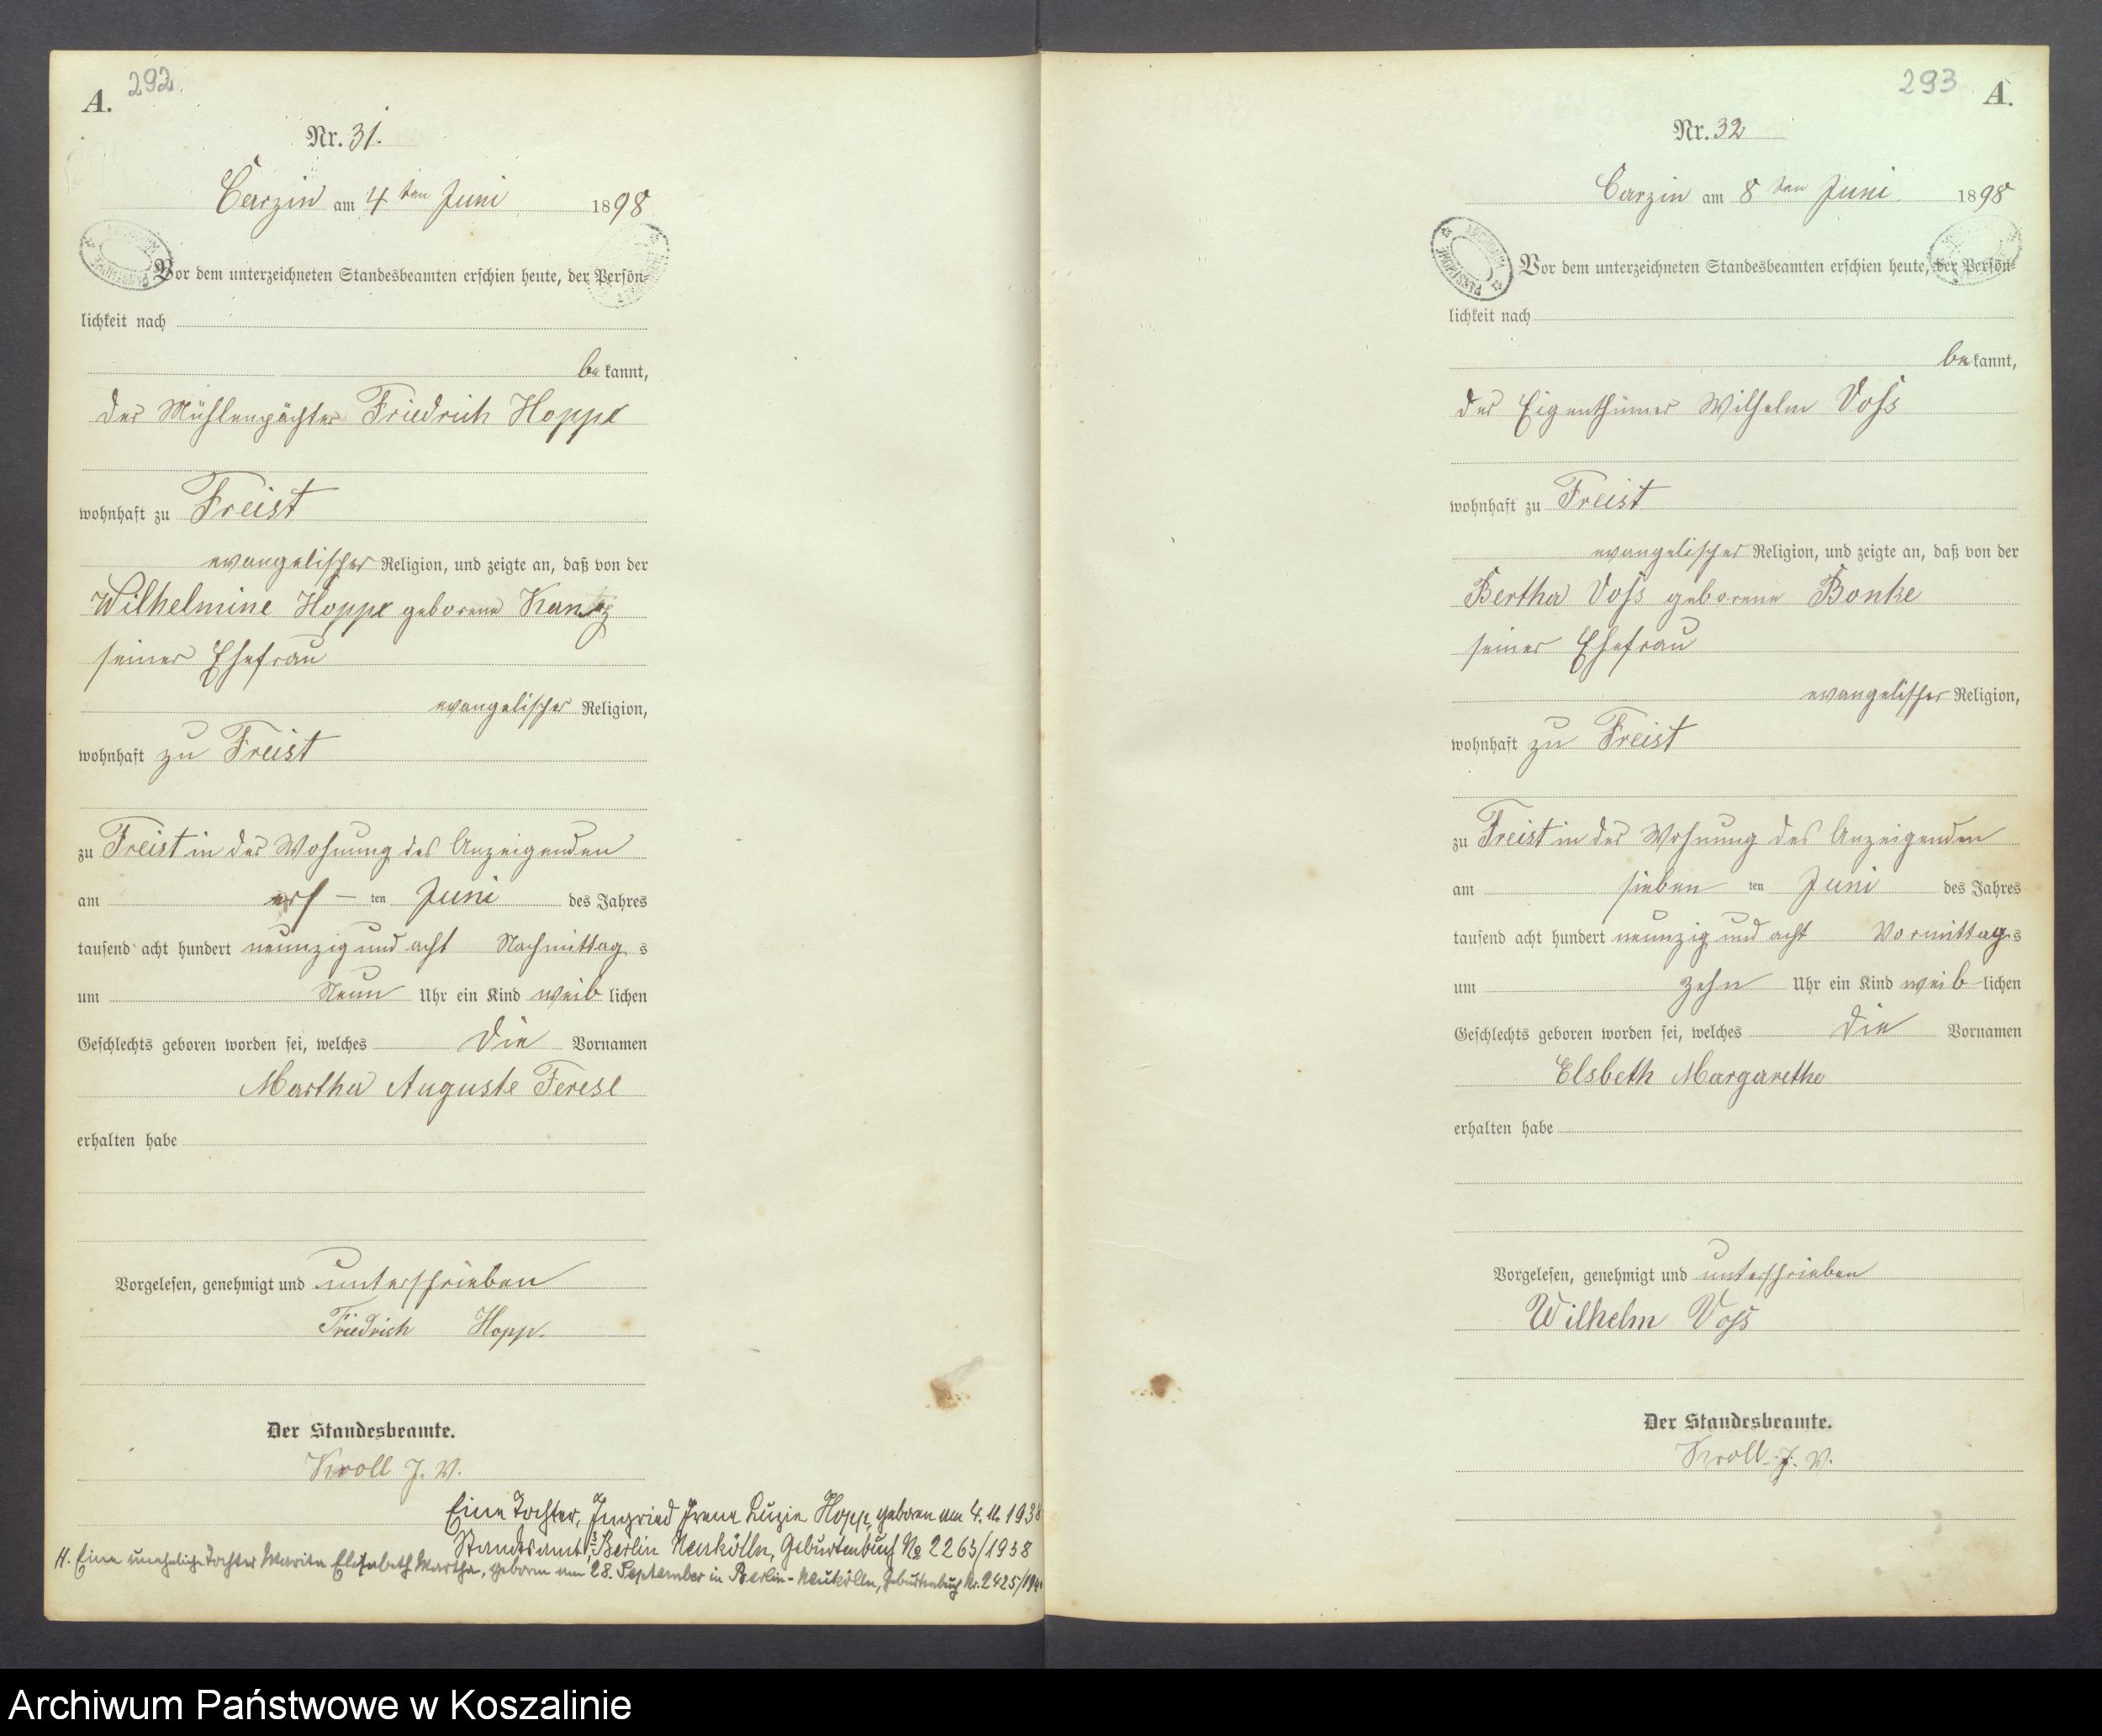 292.
A.
Nr. 31.
Carzin am 4 ten Juni 1898
Vor dem unterzeichneten Standesbeamten erschien heute, der Persön-
lichkeit nach
bekannt,
der Mühlenpächter Friedrich Hoppe
wohnhaft zu Freist
evangelischer Religion, und zeigte an, daß von der
Wilhelmine Hoppe geborene
seiner Ehefrau
evangelischer Religion,
wohnhaft zu Freist
zu Freist in der Wohnung des Anzeigenden
am ten Juni des Jahres
tausend acht hundert neunzig und acht Nachmittag s
um Neun Uhr ein Kind weib lichen
Geschlechts geboren worden sei, welches die Vornamen
Martha Auguste Terese
erhalten habe
Vorgelesen, genehmigt und unterschrieben
Friedrich Hopp.
Der Standesbeamte.
Kroll J. V.
Eine Tochter, Ingried Irene Luzie Hopp, geboren am 4. 1938
Standesamt Berlin Neukölln, Geburtenbuch No 2263/1938
H. Eine uneheliche Tochter Marita Elisabeth Martha, geboren am 28. September in Berlin-Neukölln, Geburtenbuch Nr. 2425/194
293
A.
Nr. 32
Carzin am 8 ten Juni 1898
Vor dem unterzeichneten Standesbeamten erschien heute, der Persön-
lichkeit nach
bekannt,
der Eigenthümer Wilhelm Voß
wohnhaft zu Freist
evangelischer Religion, und zeigte an, daß von der
Bertha Voß geborene Bonke
seiner Ehefrau
evangelischer Religion,
wohnhaft zu Freist
zu Freist in der Wohnung des Anzeigenden
am sieben ten Juni des Jahres
tausend acht hundert neunzig und acht Vormittags
um zehn Uhr ein Kind weib lichen
Geschlechts geboren worden sei, welches die Vornamen
Elsbeth Margarethe
erhalten habe
Vorgelesen, genehmigt und unterschrieben
Wilhelm Voß
Der Standesbeamte.
Kroll J. V.
Archiwum Państwowe w Koszalinie